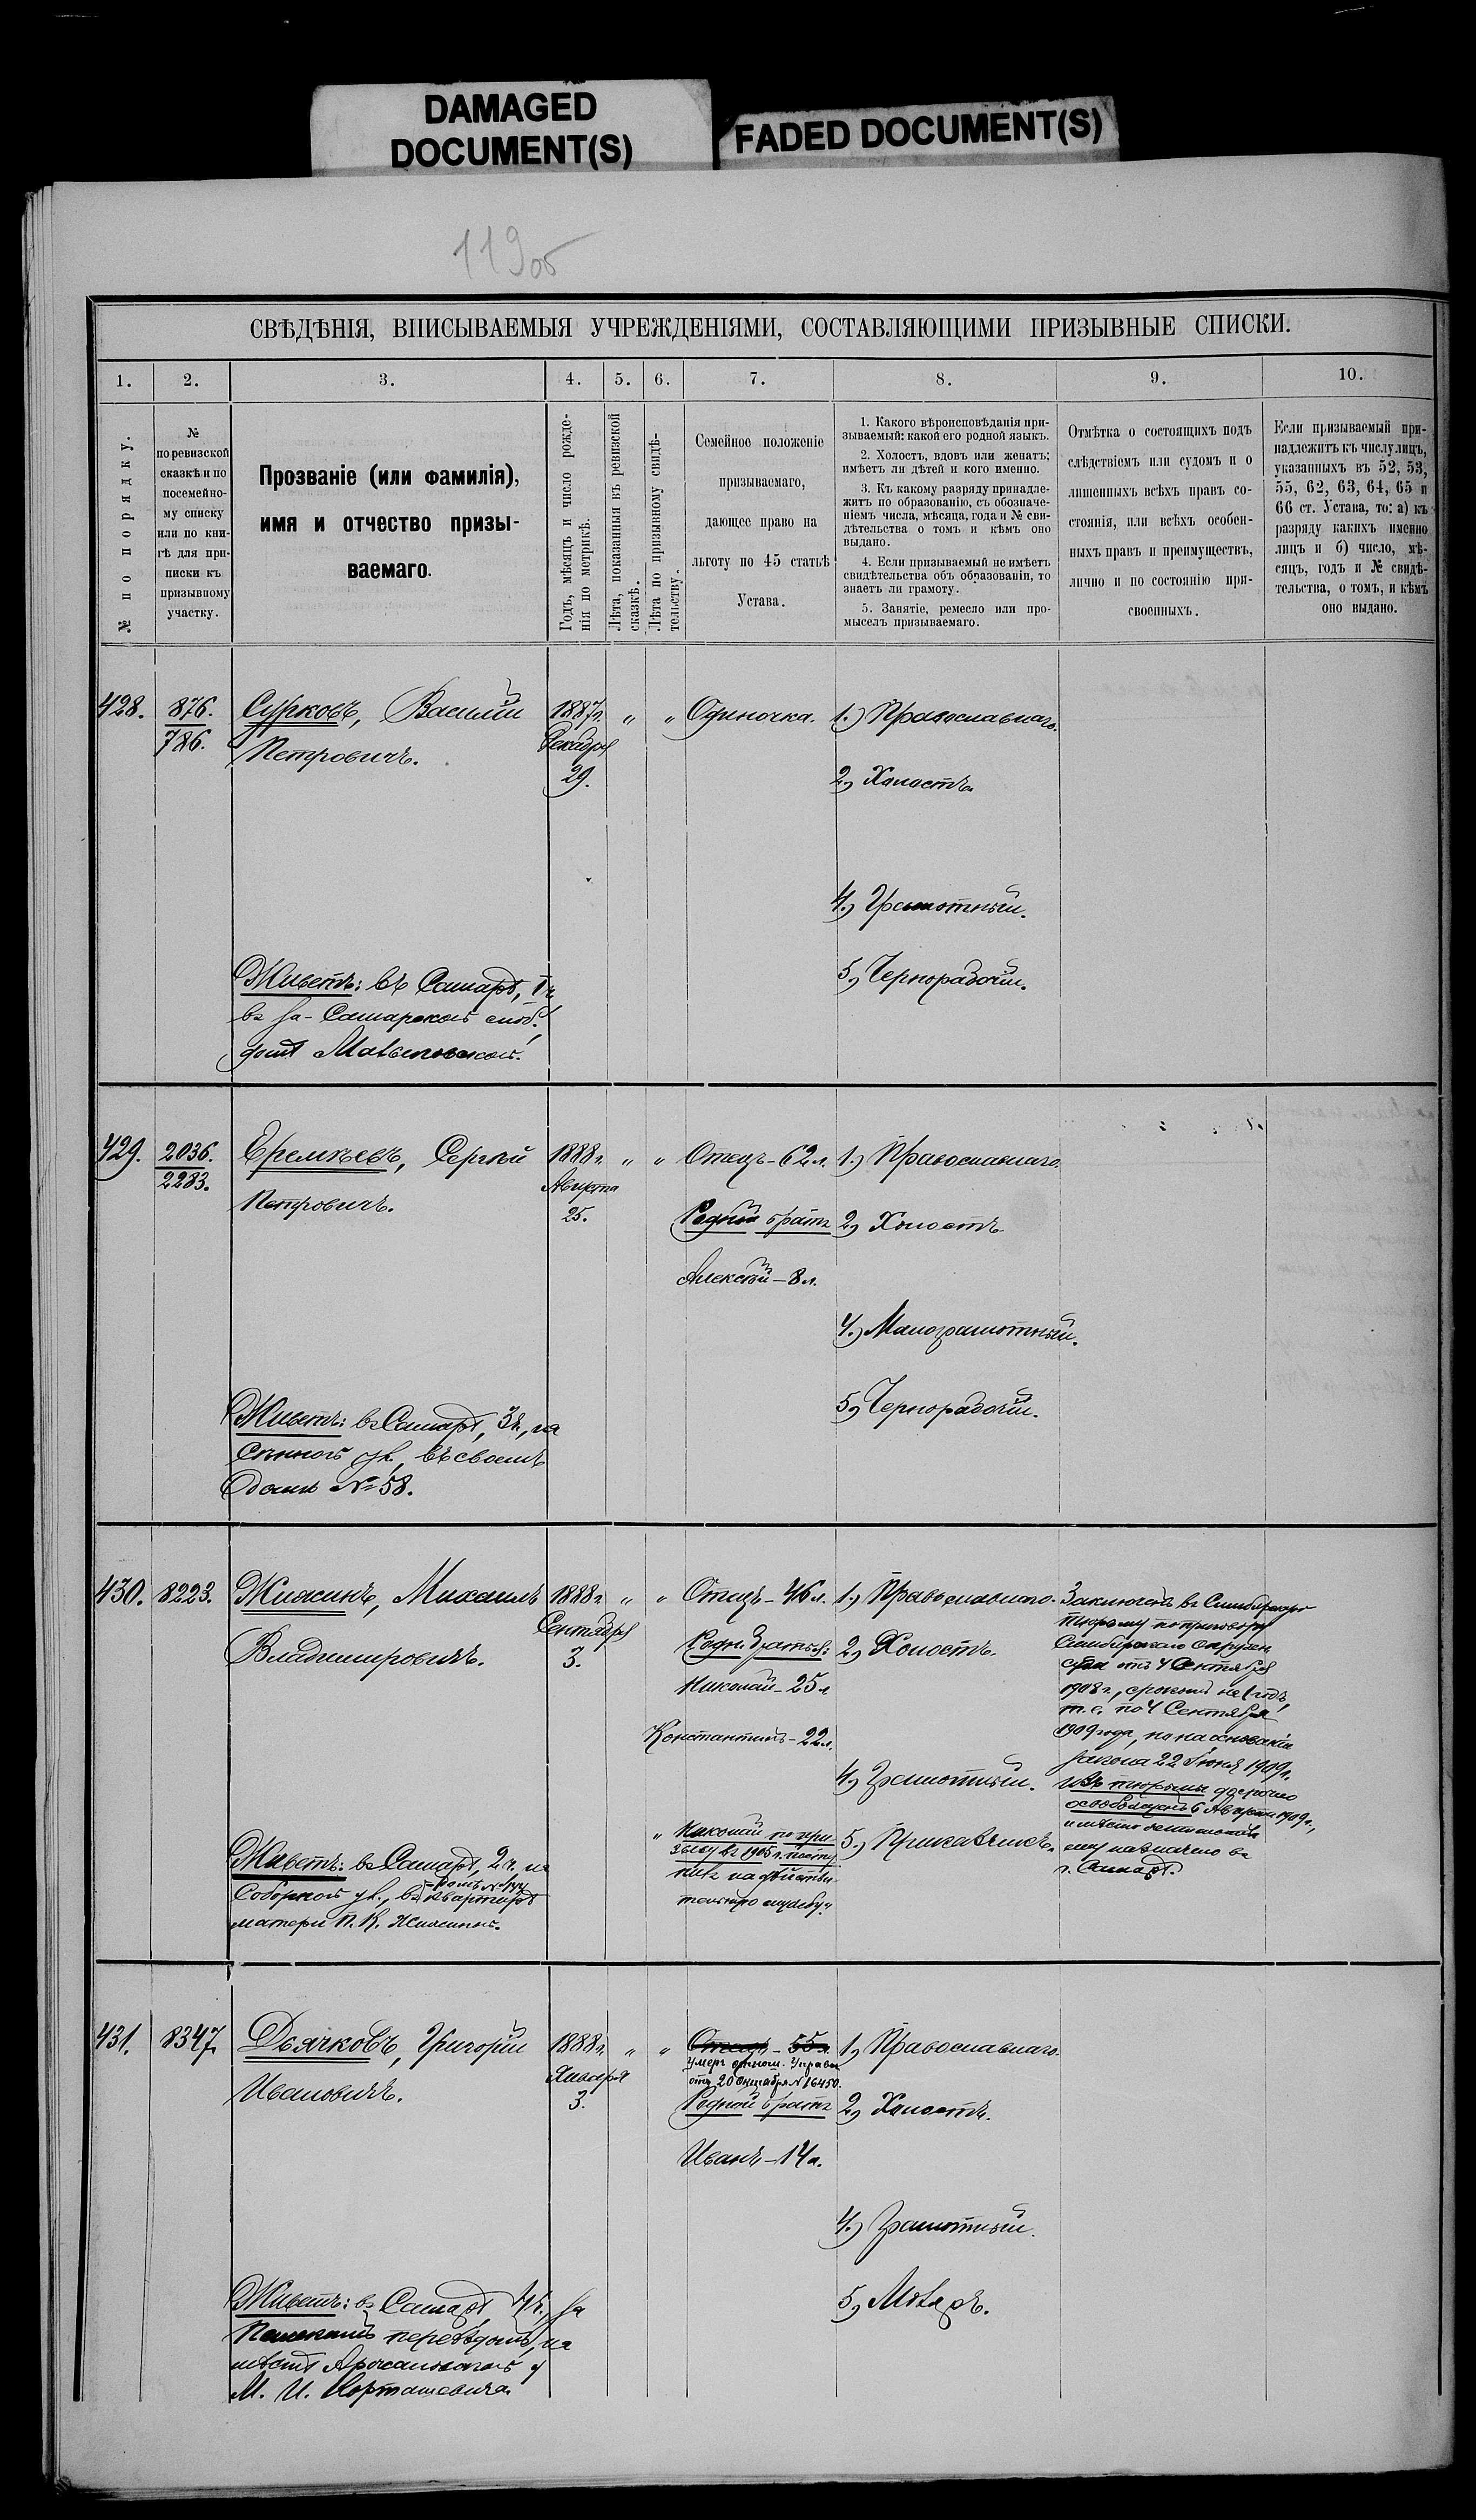 DAMAGED
DOCUMENT(S)
FADED DOCUMENT(S)
119 05
СВѢДѢНІЯ, ВПИСЫВАЕМЫЯ УЧРЕЖДЕНІЯМИ, СОСТАВЛЯЮЩИМИ ПРИЗЫВНЫЕ СПИСКИ.
1. 2. 3. 4. 5. 6. 7. 8. 9. 10.
№ по порядку.
№
по ревизской
сказкѣ и по
посемейно-
му списку
или по кни-
гѣ для при-
писки къ
призывному
участку.
Прозваніе (или фамилія),
имя и отчество призы-
ваемаго.
Годъ, мѣсяцъ и число рожде-
нія по метрикѣ.
Лѣта, показанныя въ ревизской
сказкѣ.
Лѣта по призывному свидѣ-
тельству.
Семейное положеніе
призываемаго,
дающее право на
льготу по 45 статьѣ
Устава.
1. Какого вѣроисповѣданія при-
зываемый: какой его родной языкъ.
2. Холостъ, вдовъ или женатъ;
имѣетъ ли дѣтей и кого именно.
3. Къ какому разряду принадле-
житъ по образованію, съ обозначе-
ніемъ числа, мѣсяца, года и № сви-
дѣтельства о томъ и кѣмъ оно
выдано.
4. Если призываемый не имѣетъ
свидѣтельства объ образованіи, то
знаетъ ли грамоту.
5. Занятіе, ремесло или про-
мыселъ призываемаго.
Отмѣтка о состоящихъ подъ
слѣдствіемъ или судомъ и о
лишенныхъ всѣхъ правъ со-
стоянія, или всѣхъ особен-
ныхъ правъ и преимуществъ,
лично и по состоянію при-
своенныхъ.
Если призываемый при-
надлежитъ къ числу лицъ,
указанныхъ въ 52, 53,
55, 62, 63, 64, 65 и
66 ст. Устава, то: а) къ
разряду какихъ именно
лицъ и б) число, мѣ-
сяцъ, годъ и № свидѣ-
тельства, о томъ, и кѣмъ
оно выдано.
428. 876. Сурковъ, Василій 1887г. " " Одиночка. 1.) Православнаго.
786. Петровичъ. Декабря
29. 2) Холостъ.
4.) Грамотный.
5) Чернорабочій.
Живетъ: въ Самарѣ,
въ За-Самарской слоб.,
домъ
429. 2036. Еремѣевъ, Сергѣй 1888г. " " Отецъ - 62 л. 1.) Православнаго.
2283. Петровичъ. Августа
25. Родной братъ 2) Холостъ
Алексѣй - 8 л.
4.) Малограмотный.
5) Чернорабочій.
Живетъ: въ Самарѣ, 3ч., на
Сѣнной ул., въ своемъ
домѣ № 58.
430. 8223. Жилкинъ, Михаилъ 1888г. " " Отецъ - 46 л. 1.) Православнаго.
Владиміровичъ. Сентября
3. Родн. братья: 2) Холостъ.
Николай - 25 л
Константинъ - 22 л.
4.) Грамотный.
" Николай по при-
зыву въ 1905 г. посту-
пилъ на дѣйстви-
тельную службу."
5.) Прикащикъ.
Заключенъ въ Симбирскую
тюрьму по приговору
Симбирскаго окружн.
суда отъ 4 Сентября
1908 г., срокомъ на 1 годъ,
т.е. по 4 Сентября
1909 года, но на основаніи
закона 22 Іюня 1909 г.
изъ тюрьмы досрочно
освобожденъ 6 Августа 1909 г.,
и мѣсто жительства
ему назначено въ
г. Самарѣ.
Живетъ: въ Самарѣ, 2 ч. на
Соборной ул., въ квартирѣ
матери П. К. Жилкиной.
431. 8347. Дьячковъ, Григорій 1888г. " " Отецъ - 55 л. 1) Православнаго.
Ивановичъ. Января
3.
умеръ отнош. Управы
отъ 20 Октября № 16450.
Родной братъ 2) Холостъ.
Иванъ - 14 л.
4.) Грамотный.
5) Маляръ.
Живетъ: въ Самарѣ, 4ч., за
переѣздомъ, на
мѣстѣ у
М. И.